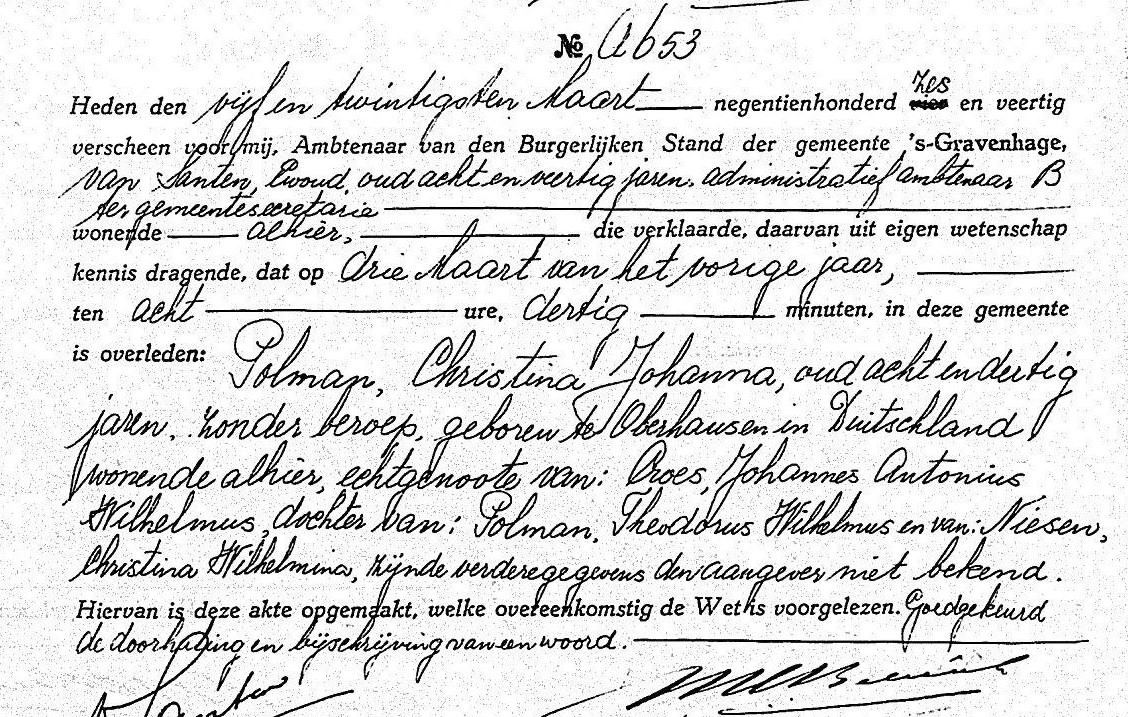 № Ab53
Heden den vijf en twintigsten Maart negentienhonderd zes en veertig
verscheen voor mij, Ambtenaar van den Burgerlijken Stand der gemeente 's-Gravenhage,
van Santen, Ewoud, oud acht en veertig jaren, administratief ambtenaar B
ter gemeentesecretarie
wonende alhier, die verklaarde, daarvan uit eigen wetenschap
kennis dragende, dat op drie Maart van het vorige jaar,
ten acht ure, dertig minuten, in deze gemeente
is overleden: Polman, Christina Johanna, oud acht en dertig
jaren, zonder beroep, geboren te Oberhausen in Duitschland
wonende alhier, echtgenoote van: Croes, Johannes Antonius
Wilhelmus, dochter van: Polman, Theodorus Wilhelmus en van: Niesen,
Christina Wilhelmina, zijnde verdere gegevens den aangever niet bekend.
Hiervan is deze akte opgemaakt, welke overeenkomstig de Wet is voorgelezen. Goedgekeurd
de doorhaling en bijschrijving van een woord.